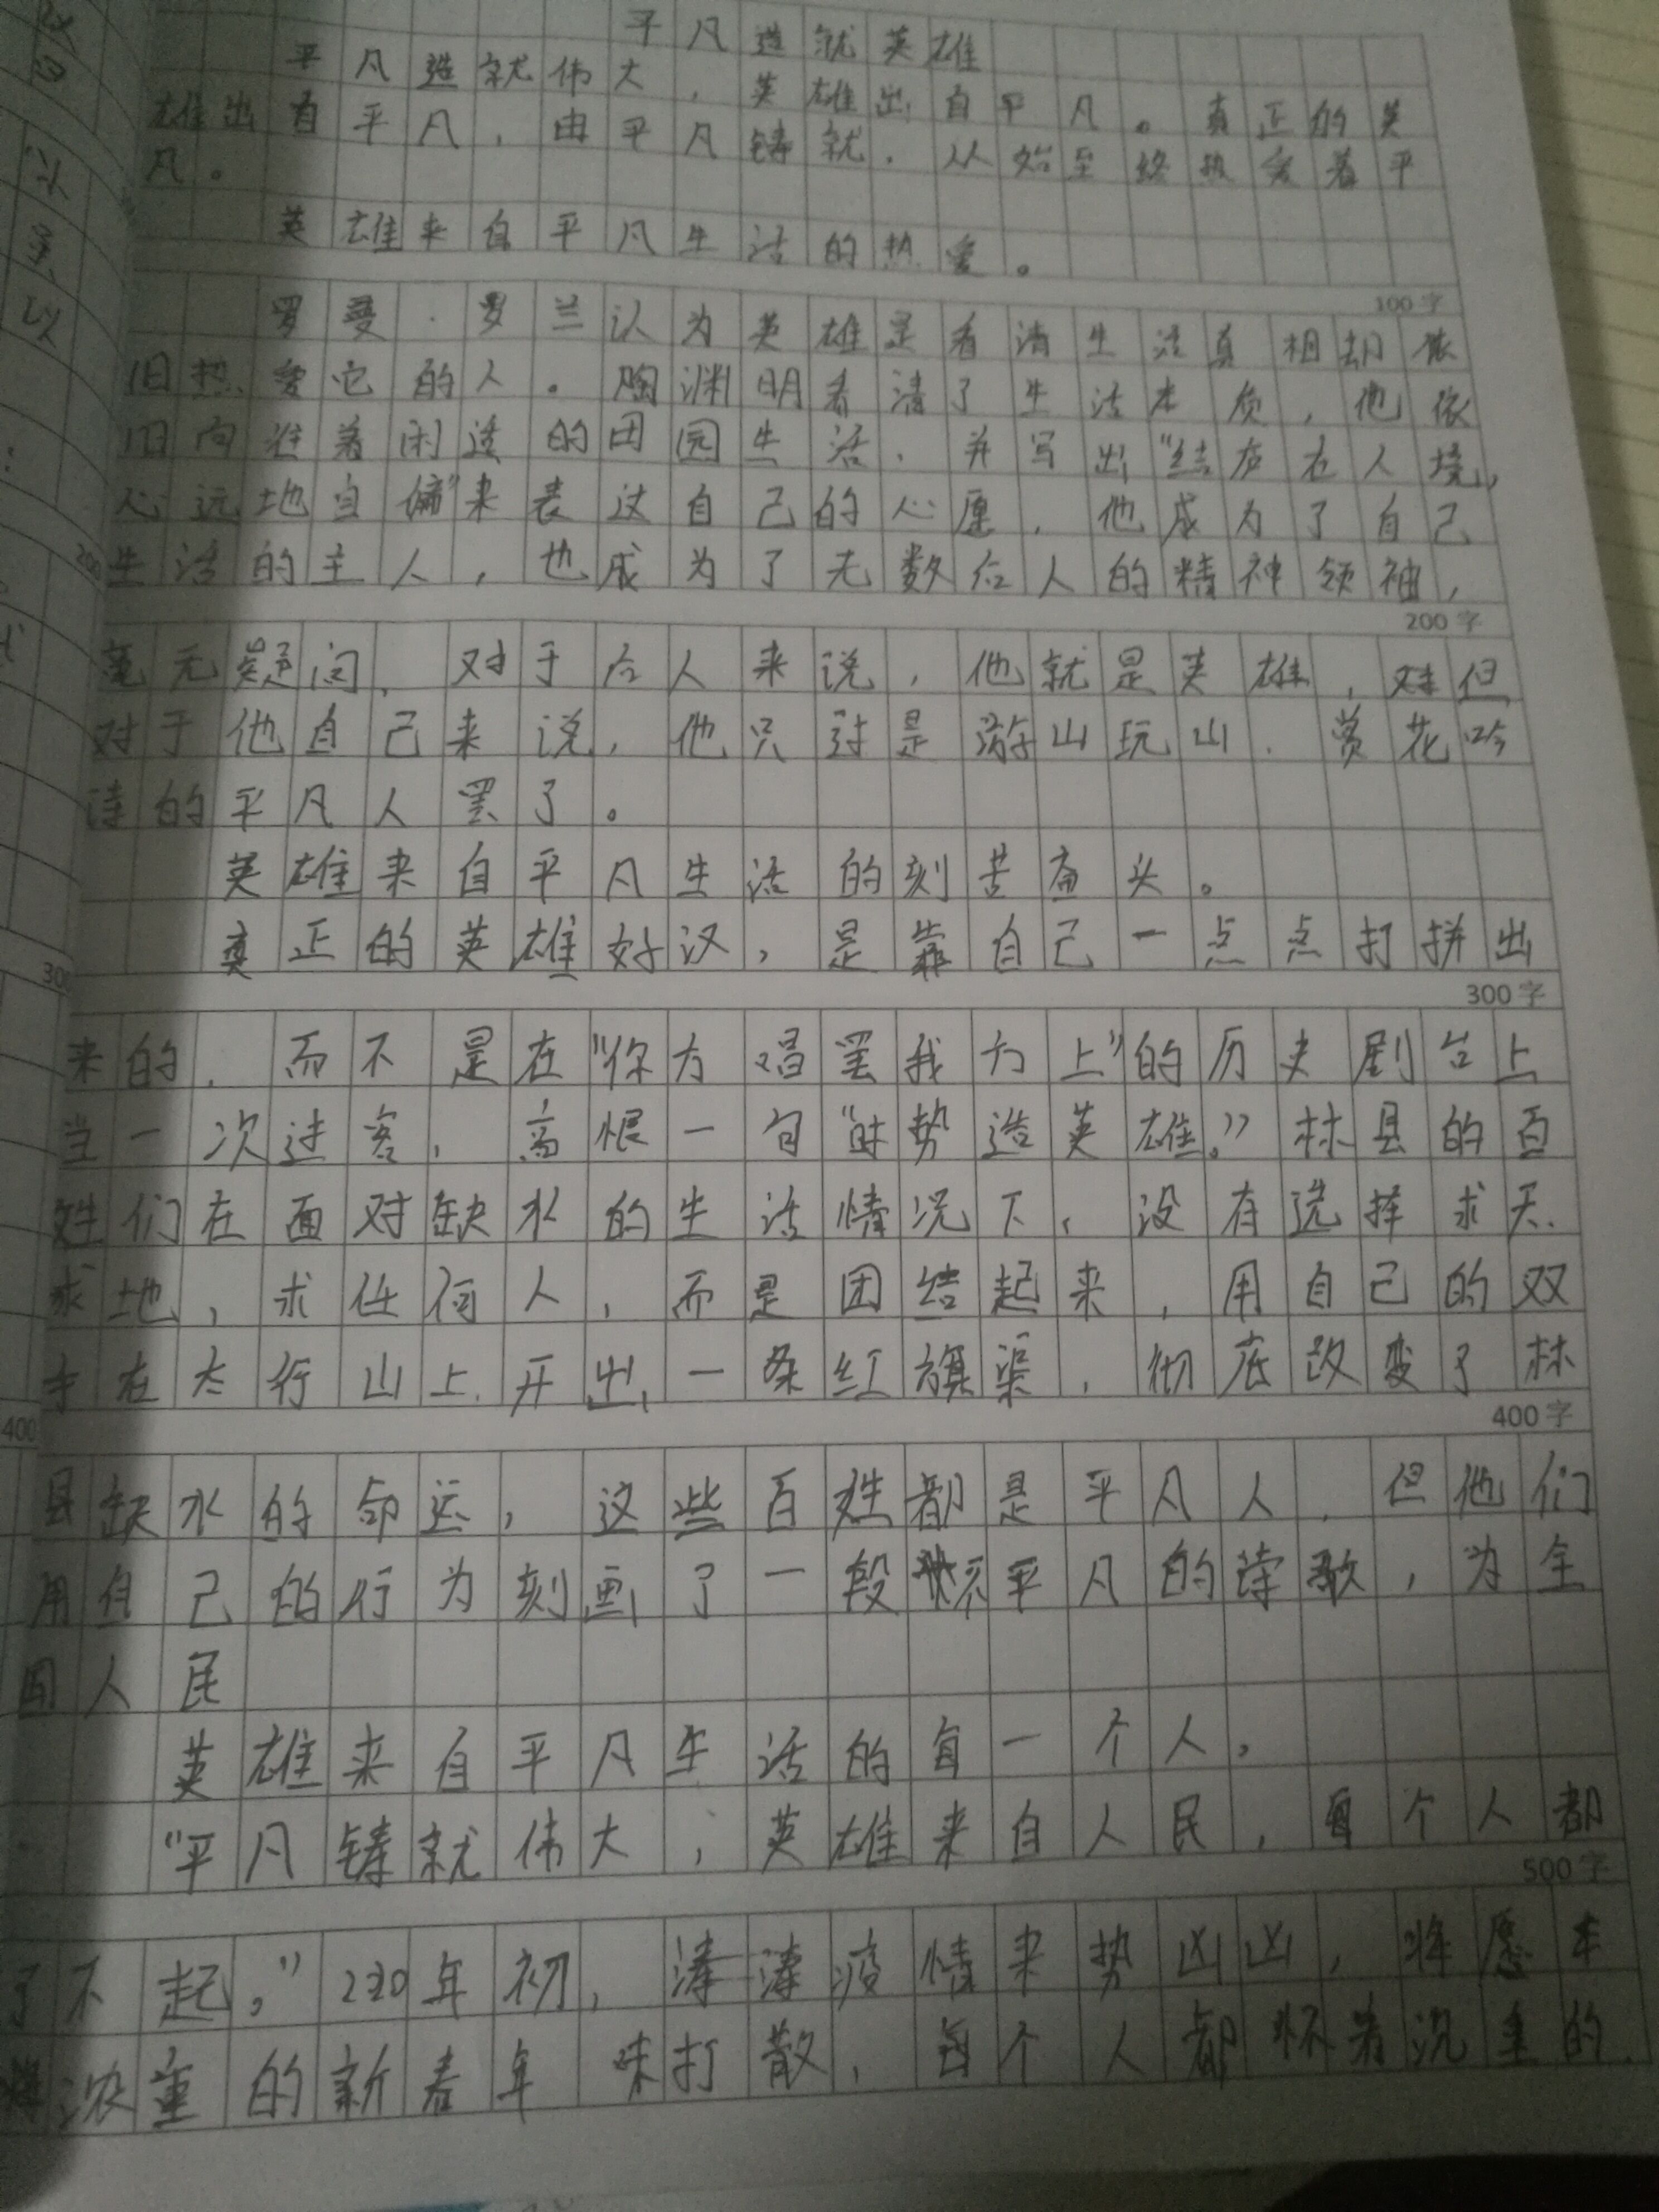 平凡造就英雄
平凡造就伟大，英雄出自平凡。真正的英
雄出自平凡，由平凡铸就，从始至终热爱着平
凡。
英雄来自平凡生活的热爱。
100字
罗曼·罗兰认为英雄是看清生活真相却依
旧热爱它的人。陶渊明看清了生活本质，他依
旧向往着闲适的田园生活，并写出“结庐在人境，
心远地自偏”来表达自己的心愿，他成为了自己
生活的主人，也成为了无数后人的精神领袖，
200字
毫无疑问，对于后人来说，他就是英雄，但
对于他自己来说，他只过是游山玩山、赏花吟
诗的平凡人罢了。
英雄来自平凡生活的刻苦奋头。
真正的英雄好汉，是靠自己一点点打拼出
300字
来的，而不是在“你方唱罢我方上”的历史剧台上
当一次过客，高恨一句“时势造英雄。”林县的百
姓们在面对缺水的生活情况下，没有选择求天、
求地，求任何人，而是团结起来，用自己的双
手在太行山上开出一条红旗渠，彻底改变了林
400字
县缺水的命运，这些百姓都是平凡人，但他们
用自己的行为刻画了一段不平凡的诗歌，为全
国人民
英雄来自平凡生活的每一个人。
“平凡铸就伟大，英雄来自人民，每个人都
500字
了不起。”2020年初，疫情来势凶凶，将原本
浓重的新春年味打散，每个人都怀着沉重的